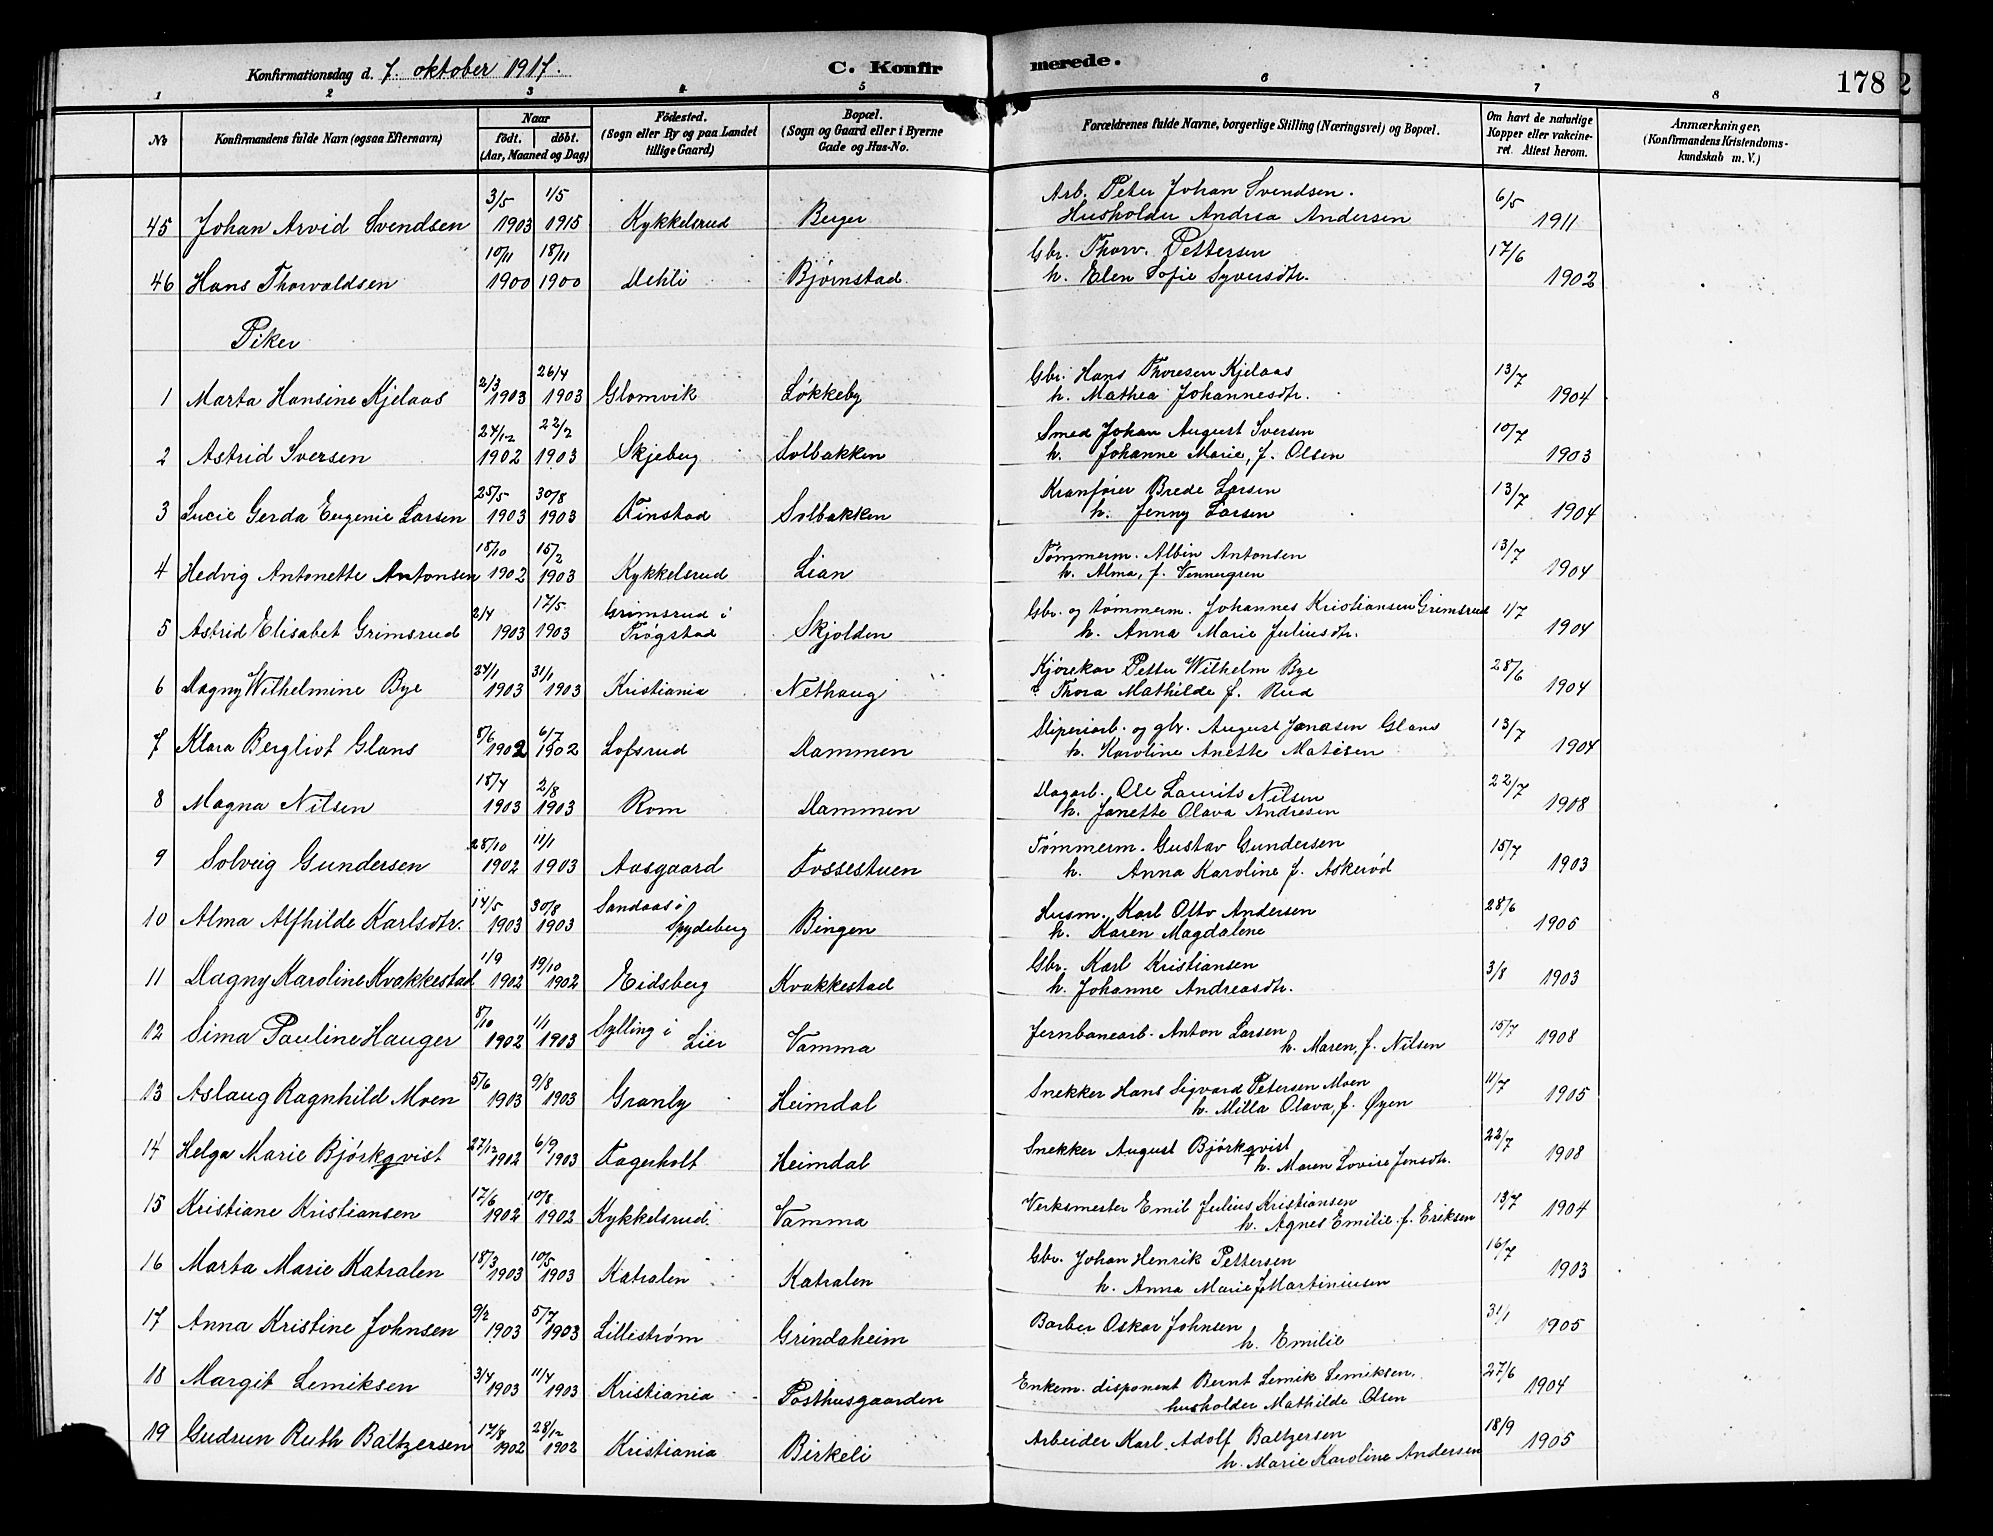 Konfirmationsdag d. 7. oktober 1917.
C. Konfirmerede.
178
1 2 3 4 5 6 7 8
No
Konfirmandens fulde Navn (ogsaa Efternavn)
Naar
födt. döbt.
(Aar, Maaned og Dag)
Födested.
(Sogn eller By og paa Landet
tillige Gaard)
Bopæl.
(Sogn og Gaard eller i Byerne
Gade og Hus-No.
Forældrenes fulde Navne, borgerlige Stilling (Næringsvei) og Bopæl.
Om havt de naturlige
Kopper eller vakcine-
ret. Attest herom.
Anmærkninger.
(Konfirmandens Kristendoms-
kundskab m. V.)
45 Johan Arvid Svendsen 3/5 1903 1/5 1915 Kykkelsrud Berger Arb. Peter Johan Svendsen. 6/5 1911
Husholder Andrea Andersen
46 Hans Thorvaldsen 10/11 1900 18/11 1900 Dehli Bjørnstad Gbr. Thorv. Pettersen 17/6 1902
h. Elen Sofie Syversdtr.
Piker
1 Marta Hansine Kjelaas 2/3 1903 26/4 1903 Glomvik Løkkeby Gbr. Hans Thoresen Kjelaas 13/7 1904
h. Mathea Johannesdtr.
2 Astrid Iversen 24/12 1902 22/2 1903 Skjeberg Solbakken Smed Johan August Iversen 10/7 1903
h. Johanne Marie, f. Olsen
3 Lucie Gerda Eugenie Larsen 25/5 1903 30/8 1903 Finstad Solbakken Kranfører Brede Larsen 13/7 1904
h. Jenny Larsen
4 Hedvig Antonette Antonsen 18/10 1902 15/2 1903 Kykkelsrud Lian Tømmerm. Albin Antonsen 13/7 1904
h. Alma, f. Vennergren
5 Astrid Elisabet Grimsrud 2/4 1903 17/5 1903 Grimsrud i Trøgstad Skjolden Gbr. og tømmerm. Johannes Kristiansen Grimsrud 1/7 1904
h. Anna Marie Juliusdtr.
6 Dagny Wilhelmine Bye 24/1 1903 31/1 1903 Kristiania Nethaug Kjørekar Petter Wilhelm Bye 28/6 1904
Thora Mathilde f. Rud
7 Klara Bergliot Glans 8/6 1902 6/7 1902 Lofsrud Dammen Sliperiarb. og gbr. August Jonasen Glans 13/7 1904
h. Karoline Anette Matisen
8 Magna Nilsen 18/7 1903 2/8 1903 Rom Dammen Dagarb. Ole Laurits Nilsen 22/7 1908
h. Janette Olava Andresen
9 Solveig Gundersen 28/10 1902 11/1 1903 Aasgaard Fossestuen Tømmerm. Gustav Gundersen 15/7 1903
h. Anna Karoline f. Askerød
10 Alma Alfhilde Karlsdtr. 14/5 1903 30/8 1903 Sandaas i Spydeberg Bingen Husm. Karl Otto Andersen 28/6 1906
h. Karen Magdalene
11 Dagny Karoline Kvakkestad 1/9 1902 19/10 1902 Eidsberg Kvakkestad Gbr. Karl Kristiansen 3/8 1903
h. Johanne Andreasdtr.
12 Sima Pauline Hauger 8/10 1902 1/1 1903 Sylling i Lier Vamma Jernbanearb. Anton Larsen 15/7 1908
h. Maren, f. Nilsen
13 Aslaug Ragnhild Moen 5/6 1903 9/8 1903 Granly Heimdal Snekker Hans Sigvard Petersen Moen 11/7 1905
h. Milla Olava, f. Øyen
14 Helga Marie Bjørkqvist 27/12 1902 6/9 1903 Fagerholt Heimdal Snekker August Bjørkqvist 22/7 1908
h. Maren Lovise Jensdtr.
15 Kristiane Kristiansen 17/6 1902 10/8 1902 Kykkelsrud Vamma Verksmester Emil Julius Kristiansen 13/7 1904
h. Agnes Emilie f. Eriksen
16 Marta Marie Katralen 18/3 1903 10/5 1903 Katralen Katralen Gbr. Johan Henrik Pettersen 16/7 1903
h. Anna Marie f Martiniusen
17 Anna Kristine Johnsen 9/2 1903 5/7 1903 Lillestrøm Grindaheim Barber Oskar Johnsen 31/1 1905
h. Emilie
18 Margit Lemiksen 3/4 1903 11/4 1903 Kristiania Posthusgaarden Enkem. disponent Bernt Lemik Lemiksen. 27/6 1904
husholder Mathilde Olsen
19 Gudrun Ruth Baltzersen 17/8 1902 28/12 1902 Kristiania Birkeli Arbeider Karl Adolf Baltzersen 18/9 1905
h. Marie Karoline Andersen